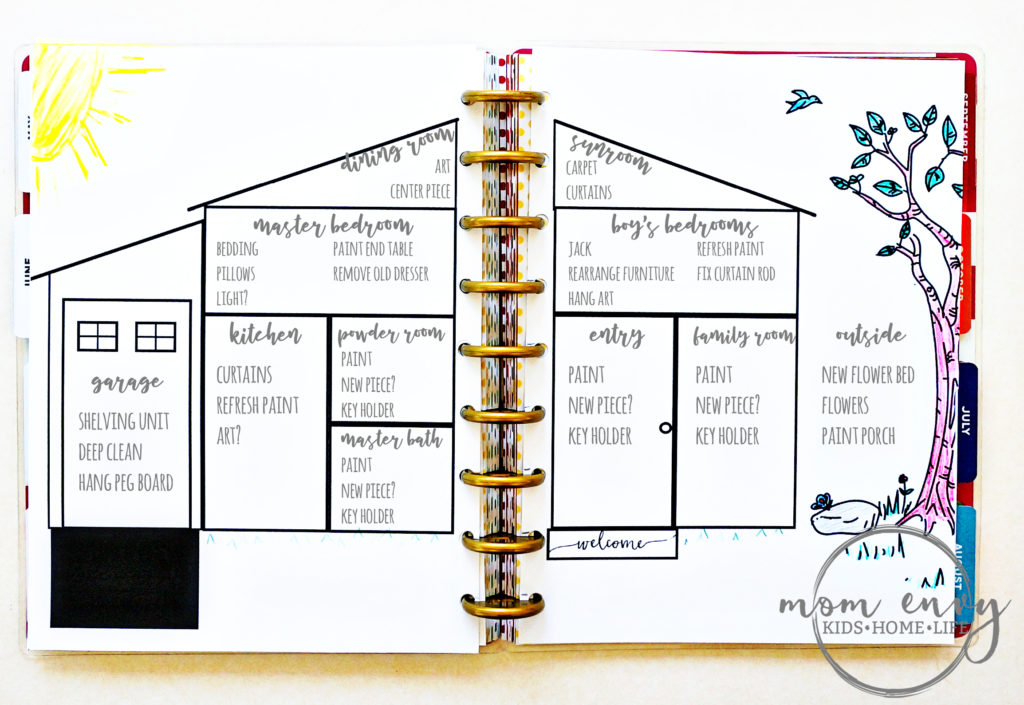 dining room
ART
CENTER PIECE
master bedroom
BEDDING
PILLOWS
LIGHT?
PAINT END TABLE
REMOVE OLD DRESSER
garage
SHELVING UNIT
DEEP CLEAN
HANG PEG BOARD
kitchen
CURTAINS
REFRESH PAINT
ART?
powder room
PAINT
NEW PIECE?
KEY HOLDER
master bath
PAINT
NEW PIECE?
KEY HOLDER
JUNE
sunroom
CARPET
CURTAINS
boy's bedrooms
JACK
REARRANGE FURNITURE
HANG ART
REFRESH PAINT
FIX CURTAIN ROD
entry
PAINT
NEW PIECE?
KEY HOLDER
family room
PAINT
NEW PIECE?
KEY HOLDER
outside
NEW FLOWER BED
FLOWERS
PAINT PORCH
welcome
SEPTEMBER
JULY
AUGUST
mom envy
KIDS•HOME•LIFE